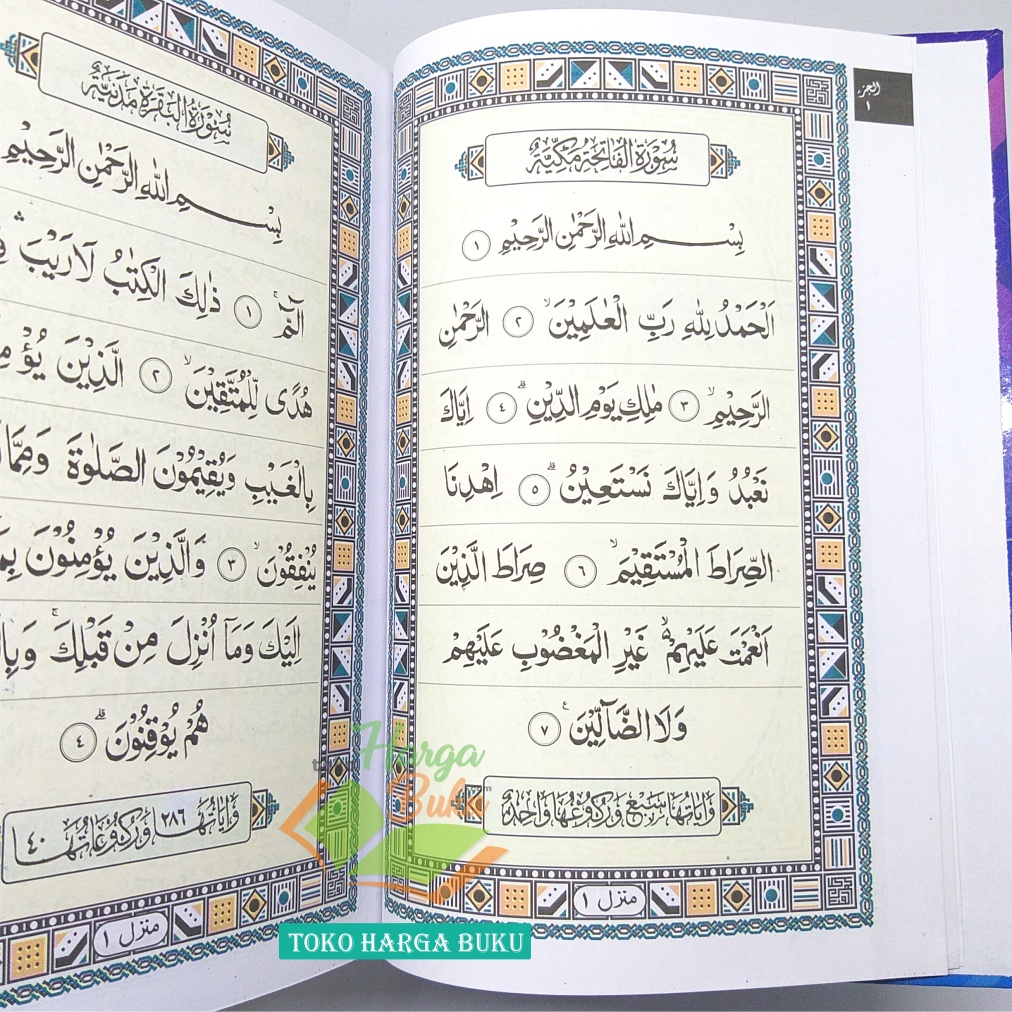 الجزء
١
سُوْرَةُ الْفَاتِحَةِ مَكِّيَّةٌ
بِسْمِ اللهِ الرَّحْمٰنِ الرَّحِيْمِ ١
اَلْحَمْدُ لِلّٰهِ رَبِّ الْعٰلَمِيْنَۙ ٢ الرَّحْمٰنِ
الرَّحِيْمِۙ ٣ مٰلِكِ يَوْمِ الدِّيْنِۗ ٤ اِيَّاكَ
نَعْبُدُ وَاِيَّاكَ نَسْتَعِيْنُۗ ٥ اِهْدِنَا
الصِّرَاطَ الْمُسْتَقِيْمَۙ ٦ صِرَاطَ الَّذِيْنَ
اَنْعَمْتَ عَلَيْهِمْ ەۙ غَيْرِ الْمَغْضُوْبِ عَلَيْهِمْ
وَلَا الضَّاۤلِّيْنَ ࣖ ٧
وَاٰيَاتُهَا سَبْعٌ وَرُكُوْعُهَا وَاحِدَةٌ
منزل ١
سُوْرَةُ الْبَقَرَةِ مَدَنِيَّةٌ
بِسْمِ اللهِ الرَّحْمٰنِ الرَّحِيْمِ
الۤمّۤۚ ١ ذٰلِكَ الْكِتٰبُ لَا رَيْبَۛ
هُدًى لِّلْمُتَّقِيْنَۙ ٢ الَّذِيْنَ
بِالْغَيْبِ وَيُقِيْمُوْنَ الصَّلٰوةَ وَمِمَّا
يُنْفِقُوْنَۙ ٣ وَالَّذِيْنَ يُؤْمِنُوْنَ
اِلَيْكَ وَمَآ اُنْزِلَ مِنْ قَبْلِكَۚ
هُمْ يُوْقِنُوْنَۗ ٤
وَاٰيَاتُهَا ٢٨٦ وَرُكُوْعَاتُهَا ٤٠
منزل ١
Harga
Buku
TOKO HARGA BUKU